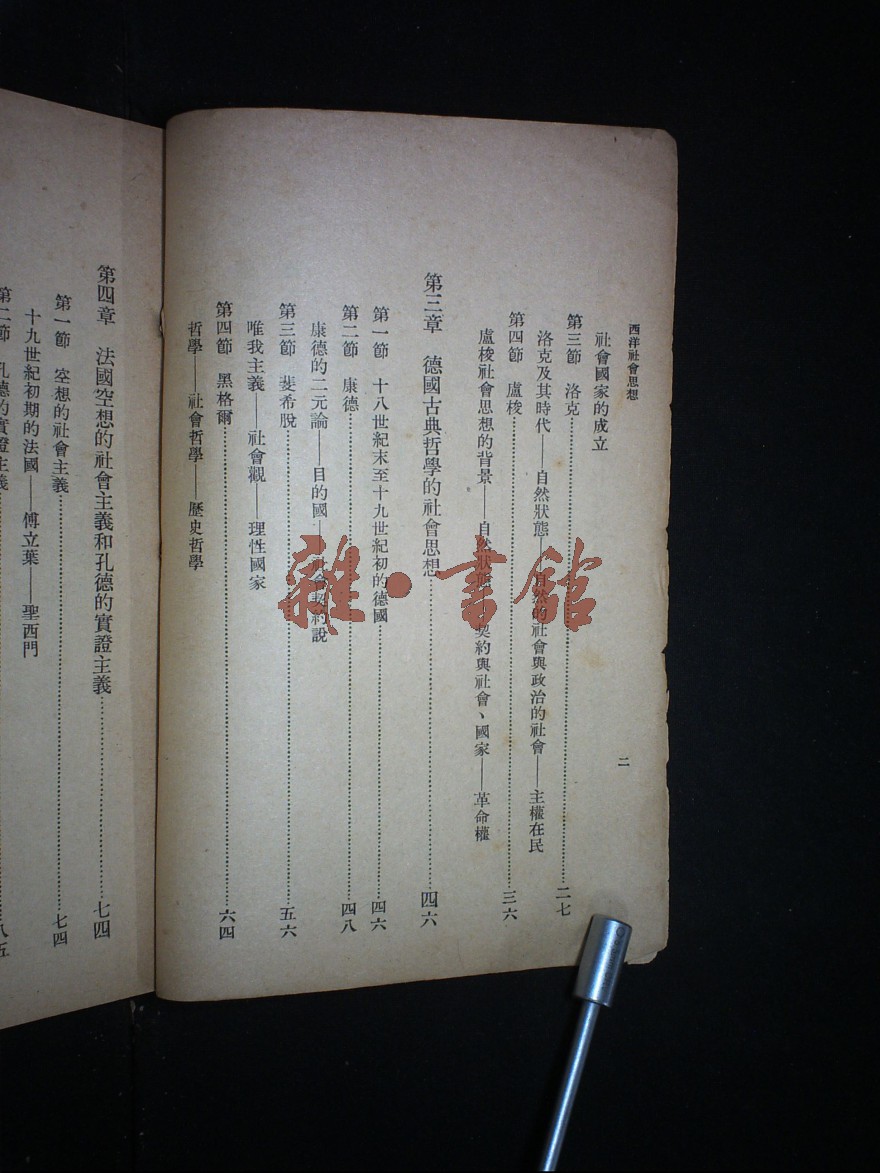 西洋社會思想
二
社會國家的成立
第三節 洛克……二七
洛克及其時代——自然狀態——自然的社會與政治的社會——主權在民
第四節 盧梭……三六
盧梭社會思想的背景——自然狀態——契約與社會、國家——革命權
第三章 德國古典哲學的社會思想……四六
第一節 十八世紀末至十九世紀初的德國……四六
第二節 康德……四八
康德的二元論——目的國——社會契約說
第三節 斐希脫……五六
唯我主義——社會觀——理性國家
第四節 黑格爾……六四
哲學——社會哲學——歷史哲學
第四章 法國空想的社會主義和孔德的實證主義……七四
第一節 空想的社會主義……七四
十九世紀初期的法國——傅立葉——聖西門
第二節 孔德的實證主義……八五
雜·書館